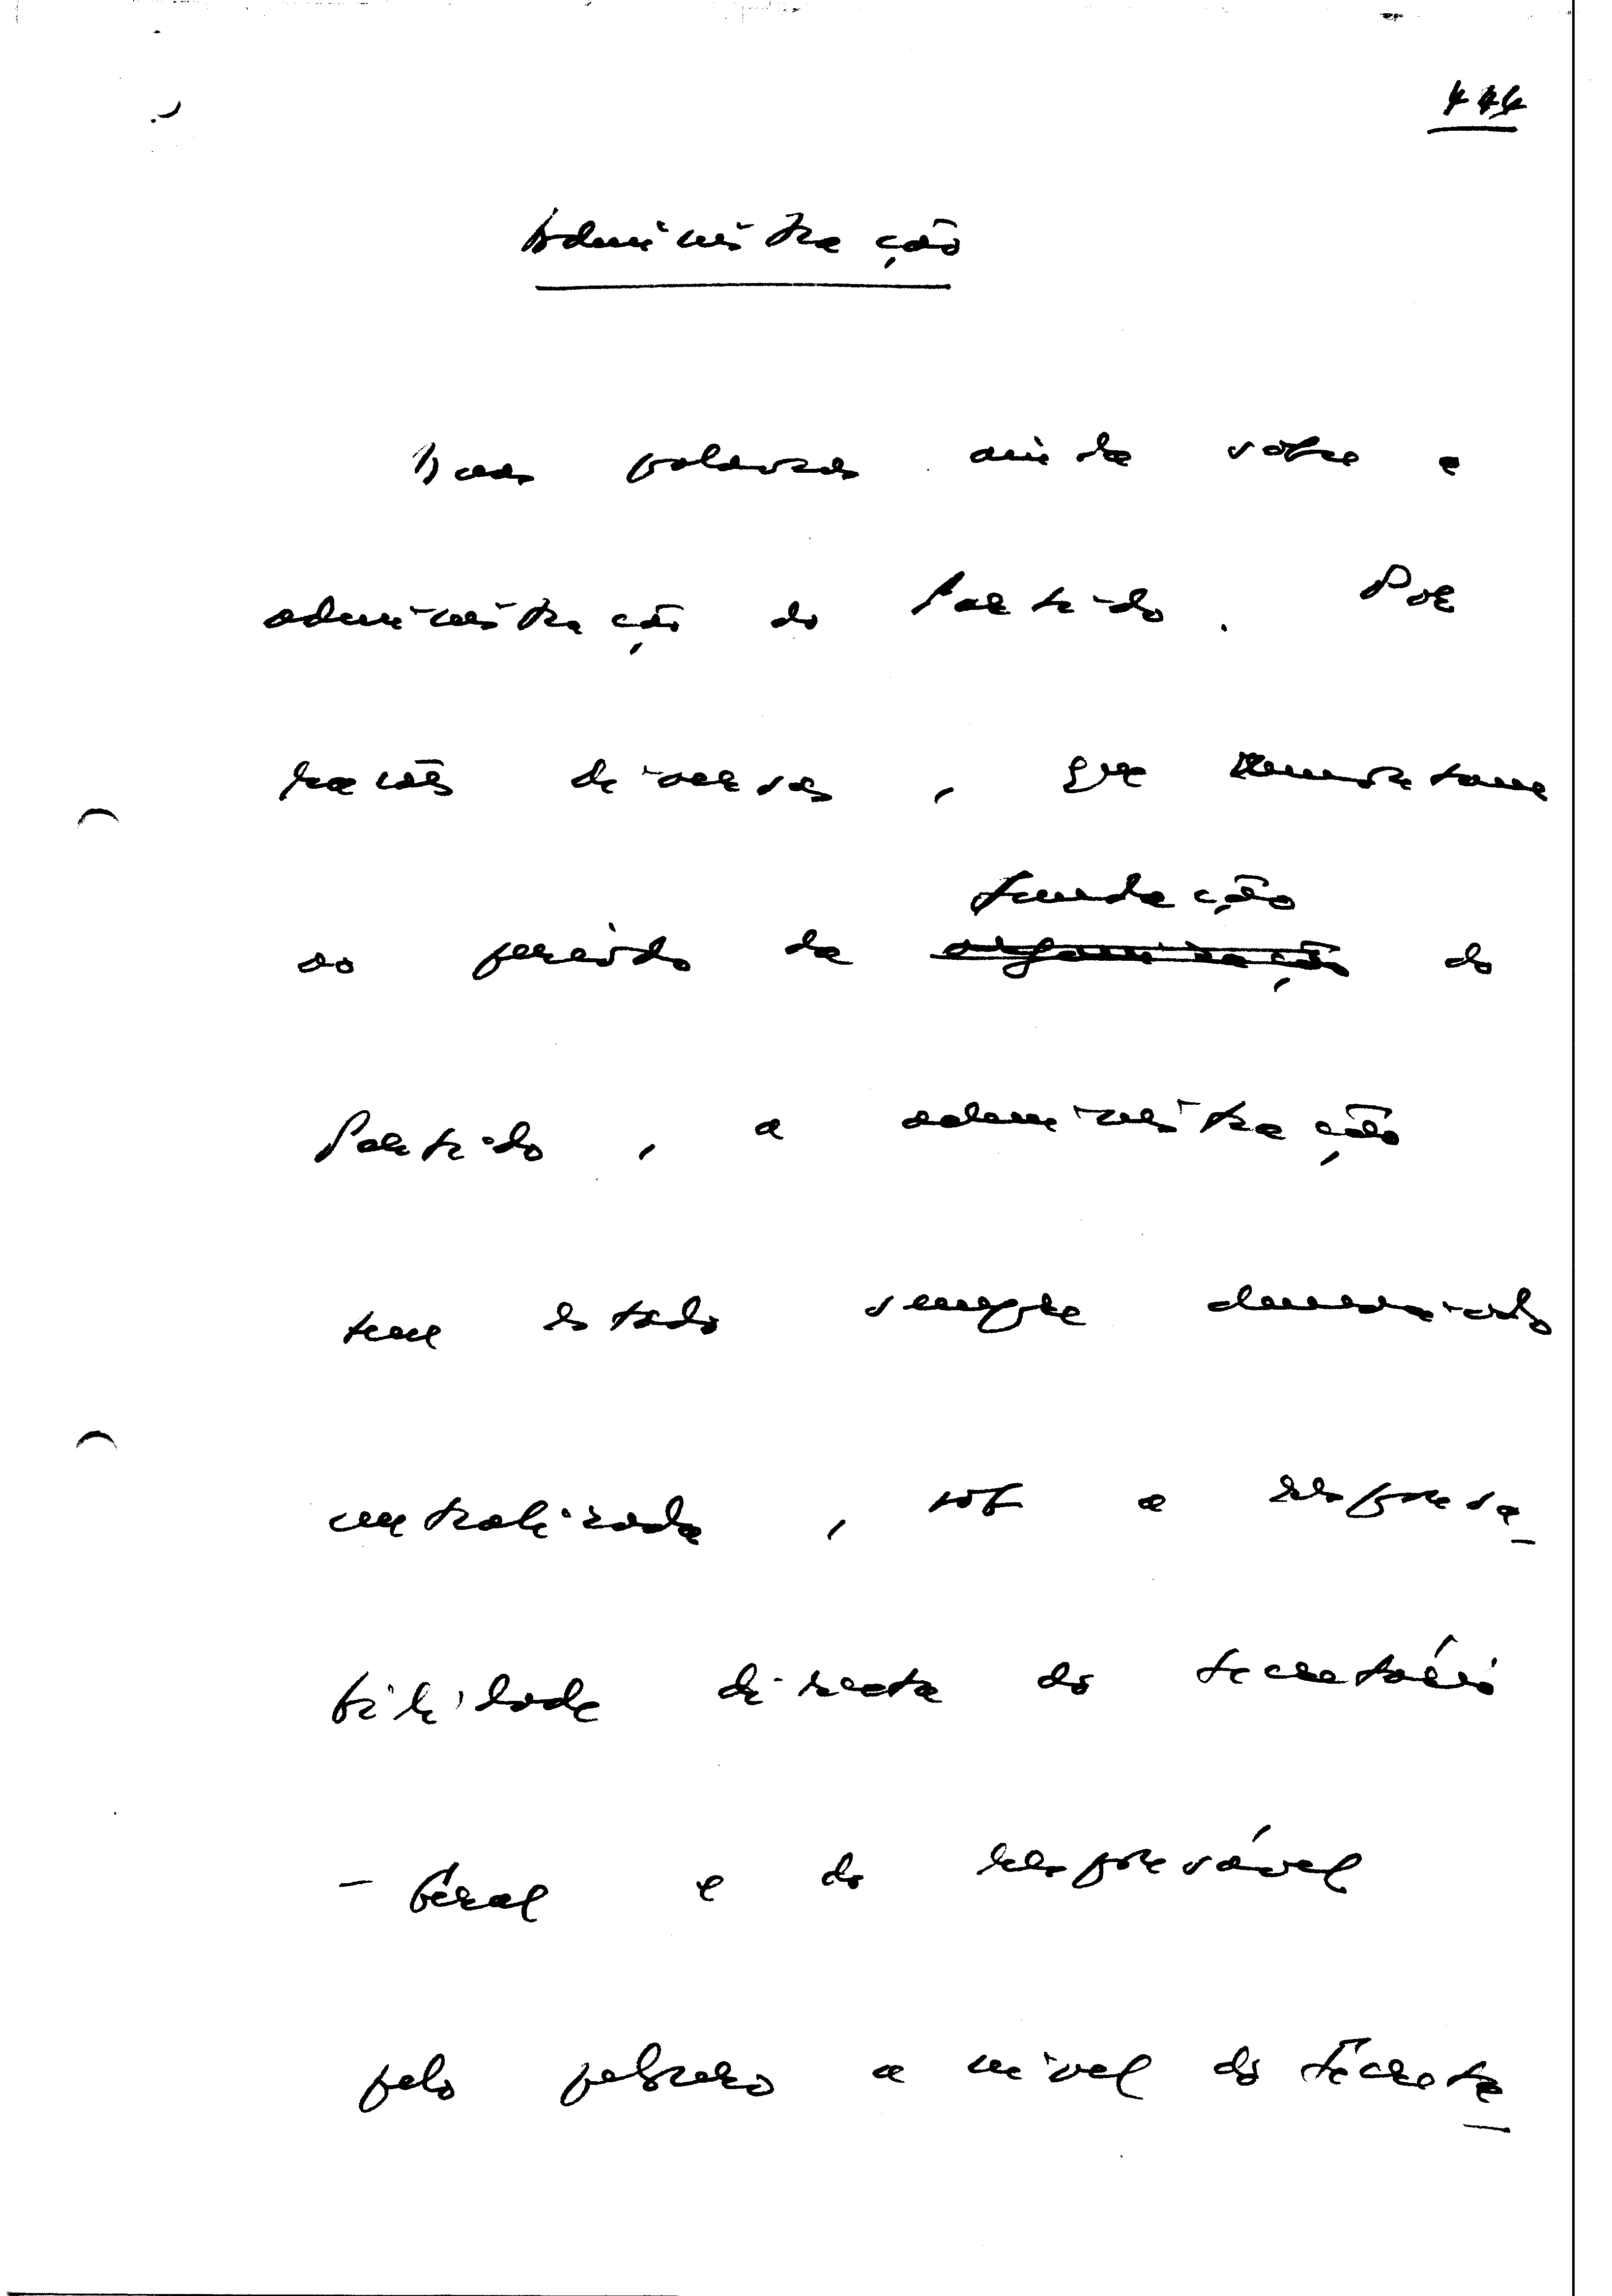 444
Administração
Duas palavras ainda sobre a
administração do Partido. Por
razões diversas, que remontam
fundação
ao período da organização do
Partido, a administração
tem estado sempre demasiado
centralizada, sob a responsa-
bilidade directa do Secretário
-Geral e do responsável
pelo pelouro a nível do Secreta-